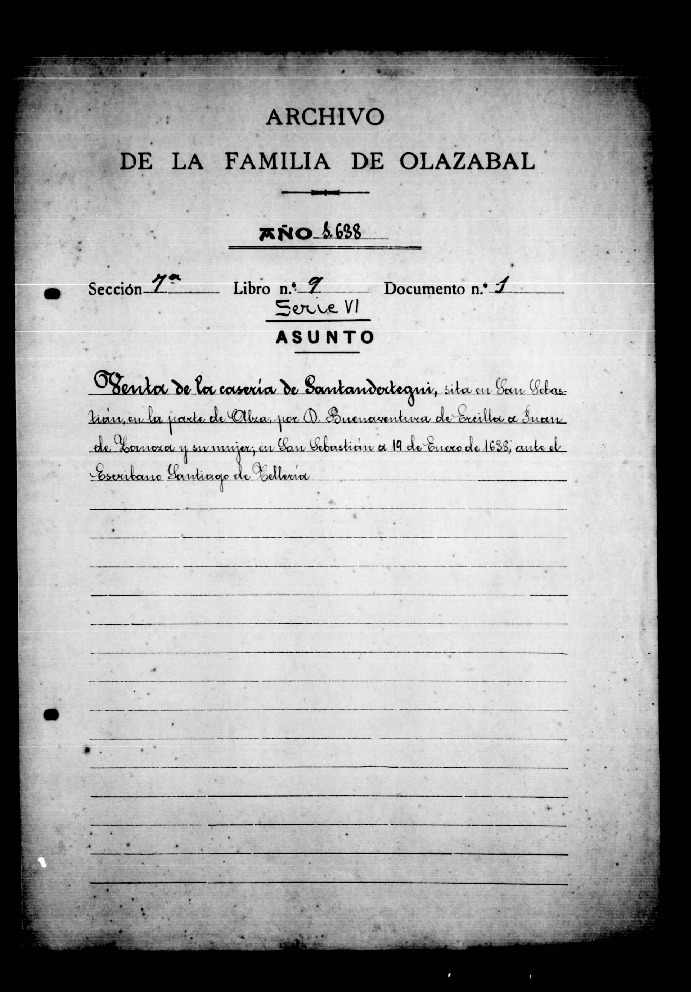 ARCHIVO
DE LA FAMILIA DE OLAZABAL
AÑO 1.638
Sección 7ª Libro n.º 9 Documento n.º 1
Serie VI
ASUNTO
Venta de la casería de Santandertegui, sita en San Sebas-
tián, en la parte de Alza, por D. Buenaventura de Ercilla a Juan
de Zornoza y su mujer; en San Sebastián a 19 de Enero de 1638; ante el
Escribano Santiago de Tellería